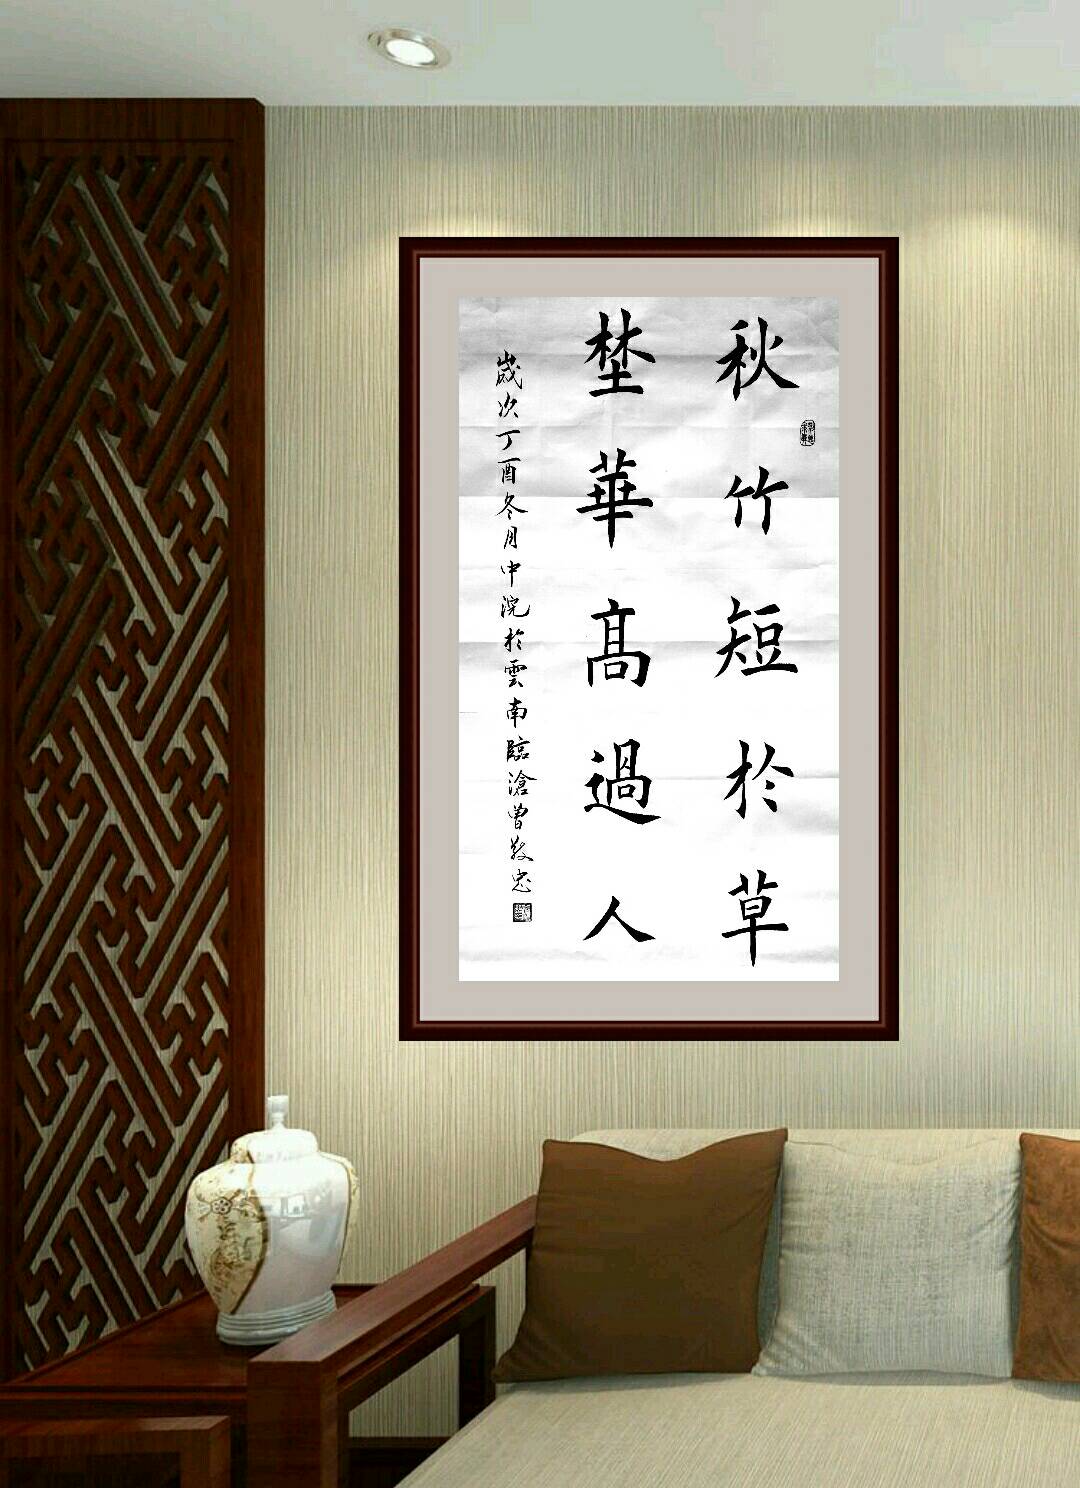 秋竹短於草
埜華高過人
歲次丁酉冬月中浣於雲南臨滄曾敬忠